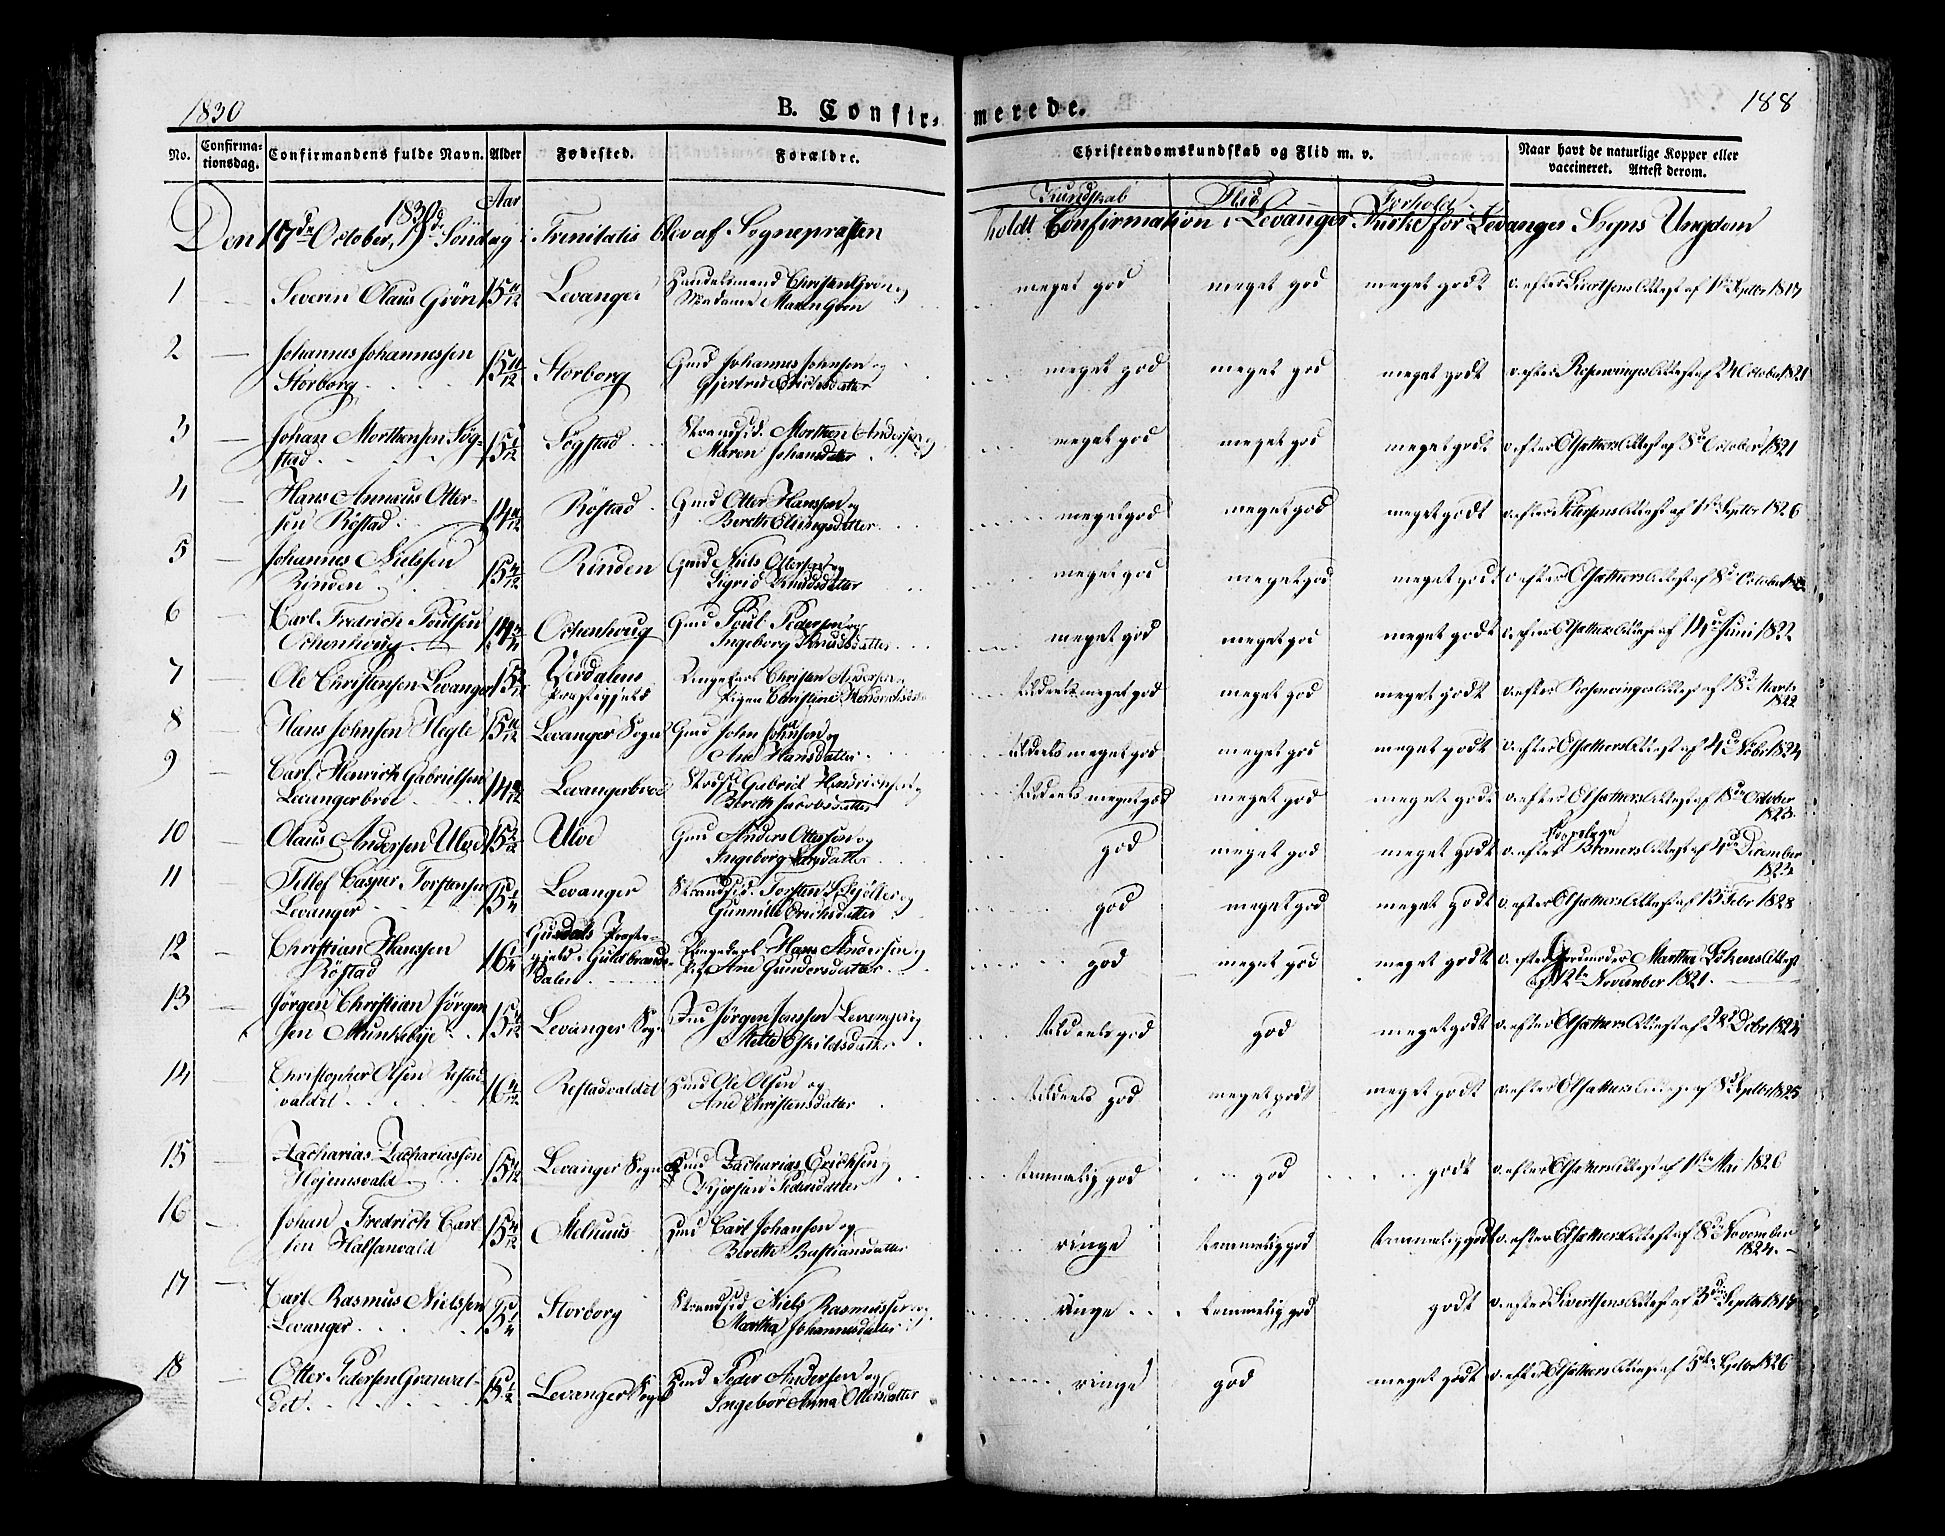 1830
B. Confir-
merede.
188
No.
Confirma-
tionsdag.
Confirmandens fulde Navn.
Alder
Fødested.
Forældre.
Christendomskundskab og Flid m. v.
Naar havt de naturlige Kopper eller
vaccineret. Attest derom.
Aar
Kundskab
Flid
Forhold
Den 17de October, 1830 19de Søndag i Trinitatis blev af Sognepræsten
holdt Confirmation i Levanger Kirke for Levanger Sogns Ungdom
1 Severin Olaus Grön 15 11/12 Levanger Handelsmand Christen Grön og
Madame Maren Grön
meget god meget god meget godt v. efter Sivertsens Attest af 1ste Septbr 1817
2 Johannes Johannessen
Storborg 15 11/12 Storborg Gmd Johannes Johnsen og
Gjertrud Erichsdatter
meget god meget god meget godt v. efter Rosenvinges Attest af 24 October 1821
3 Johan Morthensen Søg-
stad 15 1/12 Søgstad Strandsid. Morthen Andersen og
Maren Johansdatter
meget god meget god meget godt v. efter Elsæthers Attest af 8de October 1821
4 Hans Annæus Otter-
sen Röstad Röstad Gmd Otter Hanssen og
Bereth Ellingsdatter
meget god meget god meget godt v. efter Petersens Attest af 1ste Septbr 1826
5 Johannes Nielssen
Rinden 15 Rinden Gmd Niels Ottersen og
Sigrid Knudsdatter
meget god meget god meget godt v. efter Elsæthers Attest af 8de October
6 Carl Fredrich Poulsen
Ochenhoug 14 Ochenhoug Gmd Poul Pedersen og
Ingeborg Knudsdatter
meget god meget god meget godt v. efter Elsæthers Attest af 14de Juni 1822
7 Ole Christensen Levanger 15 Værdalens
Præstegjeld Ungekarl Christen Andersen og
Pigen Christine
tildeels meget god meget god meget godt v. efter Rosenvinges Attest af 18de Marts
1822
8 Hans Johnsen Hegle 15 11/12 Levanger Sogn Gmd John Johnsen og
Ane Hansdatter
tildeels meget god meget god meget godt v. efter Elsæthers Attest af 4de Novbr 1824
9 Carl Henrich Gabrielsen
Levangerbroe 14 Levangerbroe Strdsd Gabriel Henrichsen og
Bereth Jacobsdatter
tildeels meget god meget god meget godt v. efter Elsæthers Attest af 18de October
1823
10 Olaus Andersen Ulve 15 Ulve Gmd Anders Ottersen og
Ingeborg Larsdatter
god meget god meget godt v. efter Bremers Attest af 4de December
1823
11 Tellef Casper Torstensen
Levanger 15 1/4 Levanger Strandsid. Torsten og
Gunnille Erichsdatter
god meget god meget godt v. efter Elsæthers Attest af 13de Febr 1828
12 Christian Hanssen
Röstad 16 1/4 Præste-
gjeld i Guldbrands-
dalen Ungekarl Hans Andersen og
Pig. Ane Gundersdatter
god meget god meget godt v. efter Jordmoder Martha Löhens Attest
af 12te November 1821
13 Jörgen Christian Jörgen
sen Munkebye 15 Levanger Sogn Jörgen Jonssen Levanger og
Mette Eskildsdatter
tildeels god god meget godt v. efter Elsæthers Attest af
14 Christopher Olsen Restad
valdet 16 Restadvaldet Hmd Ole Olsen og
Ane Christensdatter
tildeels god meget godt meget godt v. efter Elsæthers Attest af 8de Septbr 1825
15 Zacharias Zachariassen
Höjemsvald 15 Levanger Sogn Hmd Zacharias Erichsen og
Kjersten Pedersdatter
temmelig god god godt v. efter Elsæthers Attest af 1ste Mai 1826
16 Johan Fredrich Carl-
sen Halsanvald 15 Melhuus Hmd Carl Johansen og
Berette Bastiansdatter
ringe temmelig god temmelig godt v. efter Elsæthers Attest af 8de November
1824
17 Carl Rasmus Nielssen
Levanger 15 1/4 Storborg Strandsid. Niels Rasmussen og
Martha Johannesdatter
ringe temmelig god godt v. efter Sivertsens Attest af 3die Septbr
18 Otter Pedersen Grønvel-
det 15 1/2 Levanger Sogn Hmd Peder Andersen og
Ingebor Anna Ottersdatter
ringe god meget godt v. efter Elsæthers Attest af 5te Septbr 1826